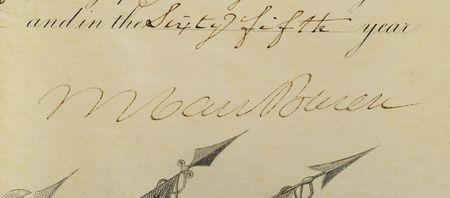 and in the Sixty fifth year
M Van Buren